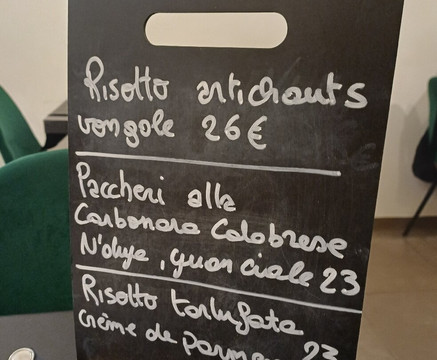 Risotto artichauts
vongole 26€
Paccheri alla
Carbonara Calabrese
N'duja, guanciale 23
Risotto tartufata
crème de parm 23